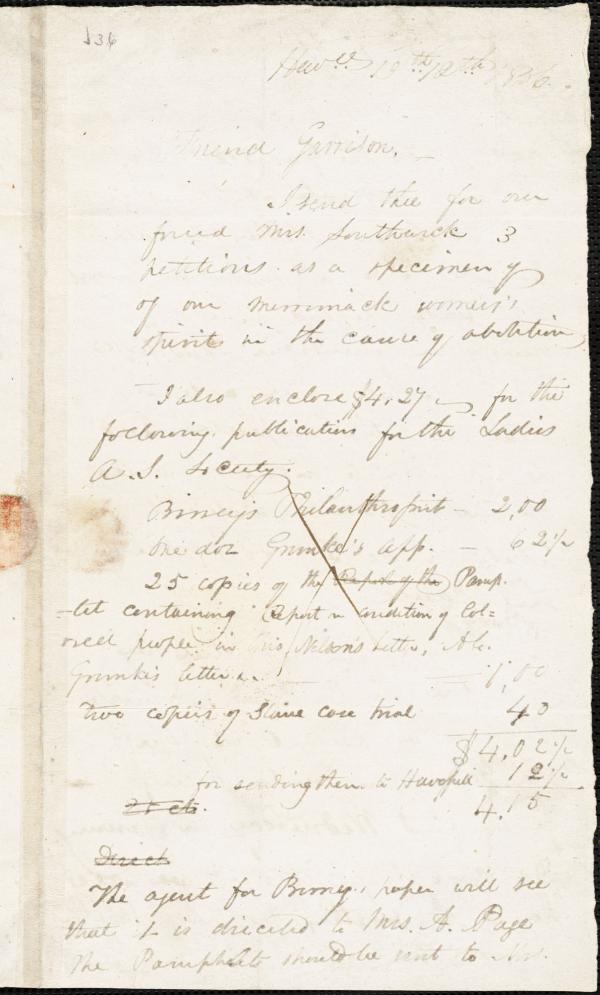 136
Hav.ll 10th 12th 1836.
Friend Garrison,
I send thee for our
friend Mrs. Southwick 3
petitions as a specimen of
of our Merrimack women's
spirits in the cause of abolition,
I also enclose $4,27 for the
following publications for the Ladies
A. S. Society.
Birney's Philanthropist - 2,00
one doz Grimke's App. - 62 1/2
25 copies of the Report of the Pamp-
-let containing Report on condition of Col=
ored people in Ohio, Nelson's letter, A. E.
Grimke's letter &c. 1,00
two copies of Slave case trial 40
$4,02 1/2
for sending them to Haverhill 12 1/2
4.15
Direct
The agent for Birney's paper will see
that it is directed to Mrs. A. Page
The Pamphlets should be sent to Mr.